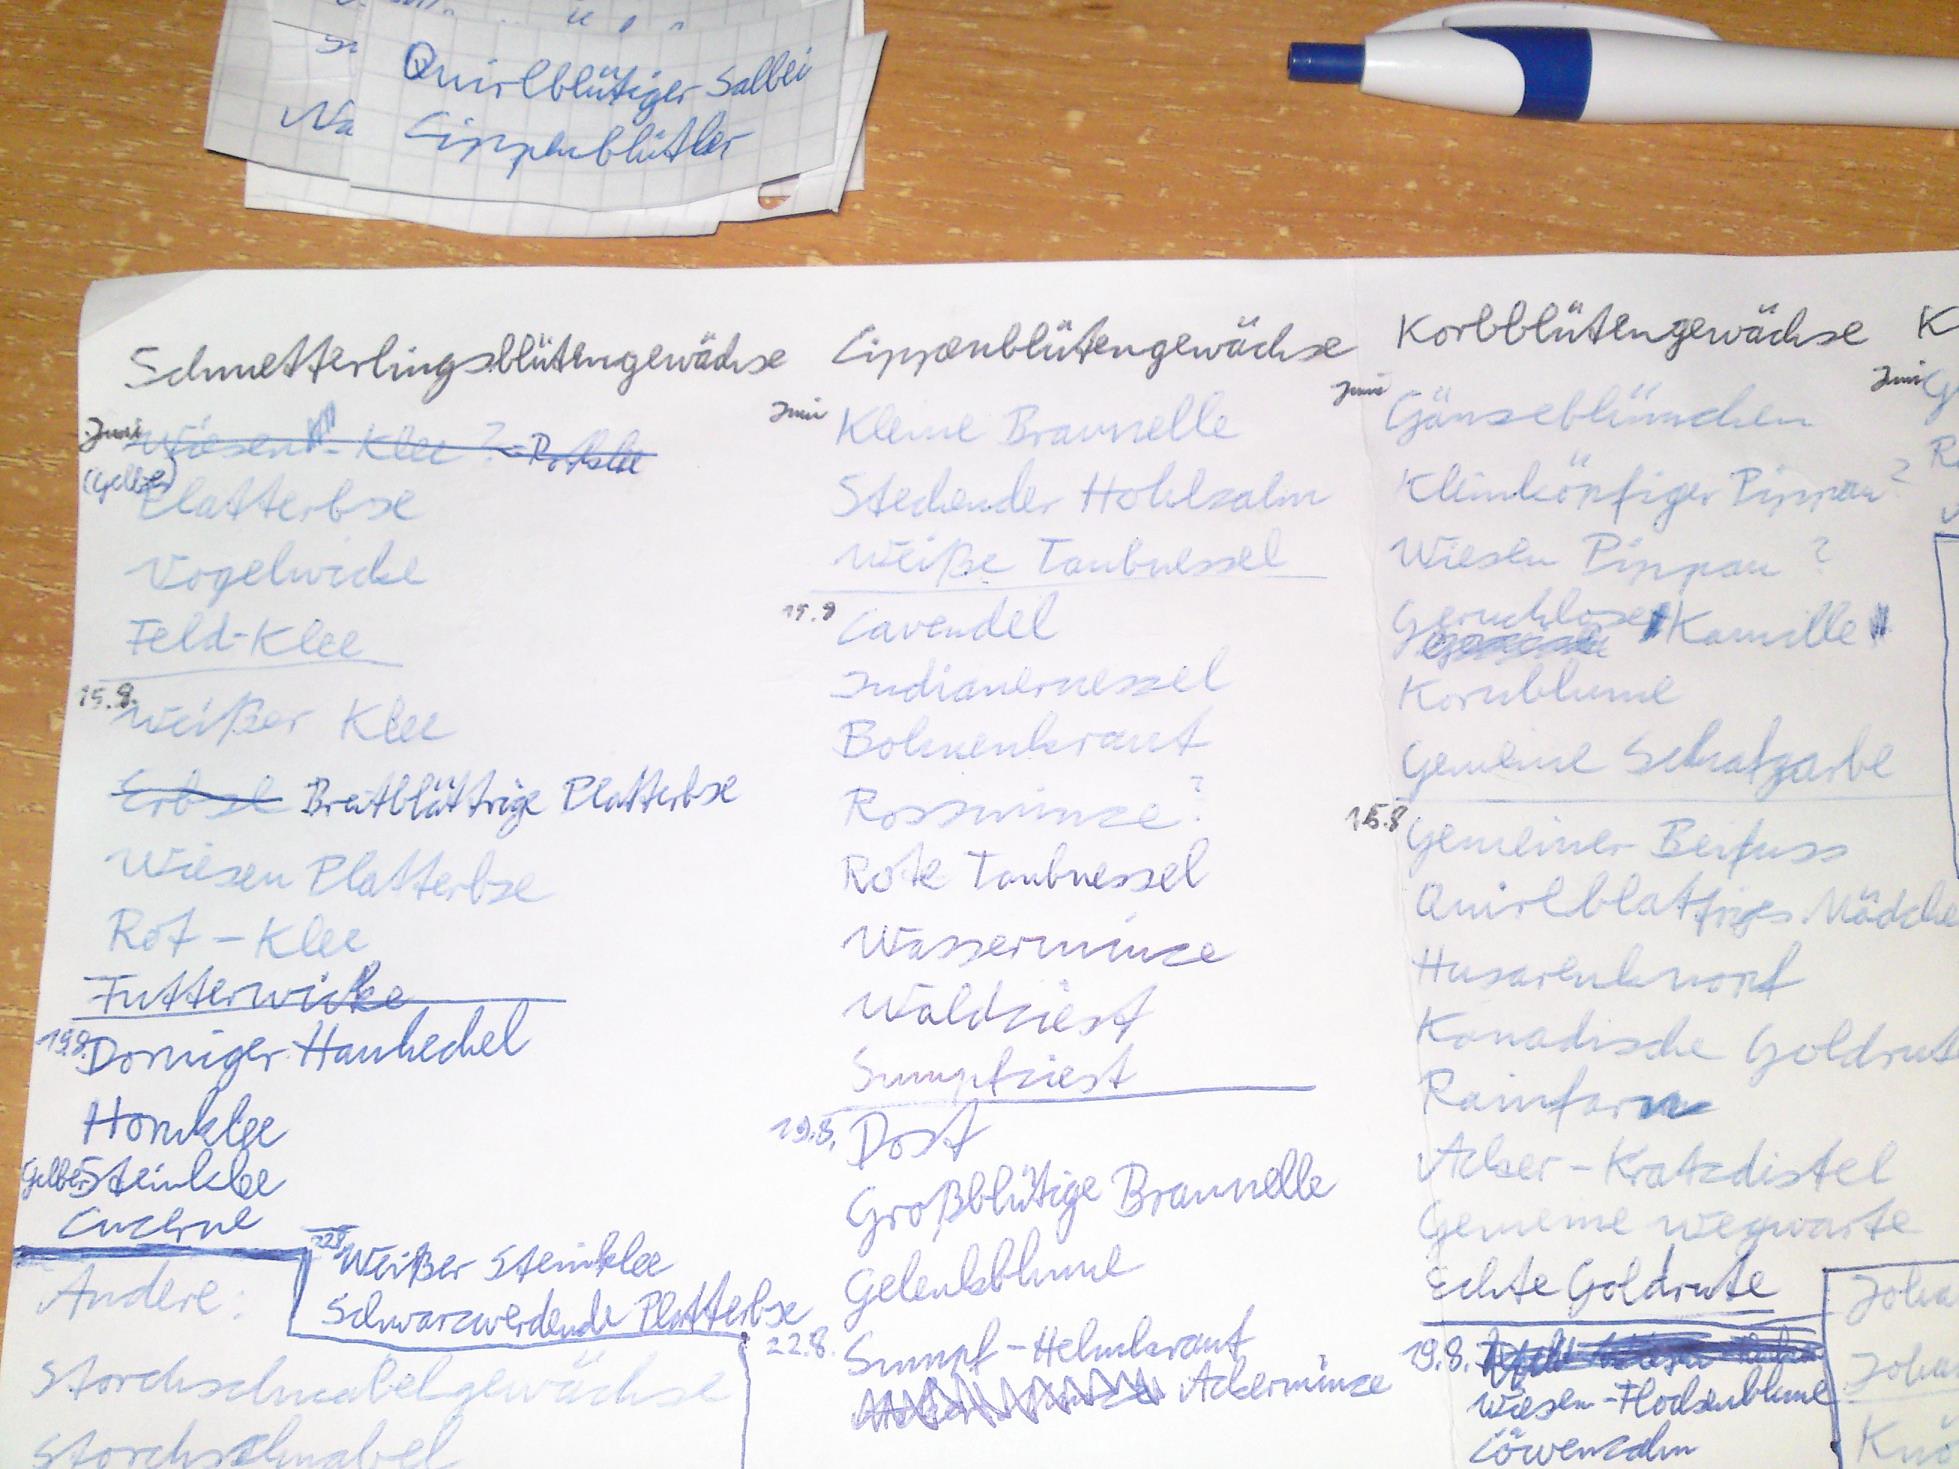 Quirlblütiger Salbei
Lippenblütler
Schmetterlingsblütengewächse
Juni
Wiesen - Klee ? = Rotklee
(Gelbe)
Platterbse
Vogelwicke
Feld-Klee
15.8.
Weißer Klee
Erbse Breitblättrige Platterbse
Wiesen Platterbse
Rot - Klee
Futterwicke
19.8. Dorniger Hauhechel
Hornklee
Gelber Steinklee
Luzerne
22.8. Weißer Steinklee
Schwarzwerdende Platterbse
Andere:
Storchschnabelgewächse
Storchschnabel
Lippenblütengewächse
Juni Kleine Braunelle
Stechender Hohlzahn
Weiße Taubnessel
15.8 Lavendel
Indianernessel
Bohnenkraut
Rossminze?
Rote Taubnessel
Wasserminze
Waldziest
Sumpfziest
19.8. Dost
Großblütige Braunelle
Gelenkblume
22.8. Sumpf - Helmkraut
Ackerminze
Korbblütengewächse
Juni Gänseblümchen
Kleinköpfiger Pippau?
Wiesen Pippau ?
Geruchlose Kamille
Kornblume
Gemeine Schafgarbe
15.8 Gemeiner Beifuss
Quirlblattriges Mädche
Husarenknopf
Kanadische Goldrut
Rainfarn
Acker - Kratzdistel
Gemeine Wegwarte
Echte Goldrute
19.8.
Wiesen - Flockenblume
Löwenzahn
Juni
Joha
Joha
Knö